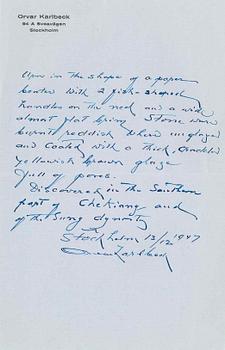 Orvar Karlbeck
94 A Sveavägen
Stockholm
Urn in the shape of a paper
beater with 2 fish-shaped
handles on the neck and a wide
almost flat brim. Stone ware
burnt reddish where unglazed
and coated with a thick, crackled
yellowish brown glaze
full of pores.
Discovered in the Southern
part of Chekiang and
of the Sung dynasty
Stockholm 13/12 1947
Orvar Karlbeck